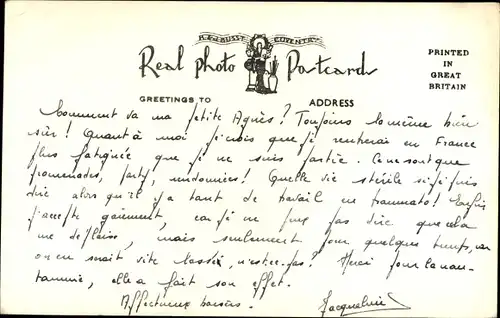 R.E. & BUSST COVENTRY
Real Photo Postcards
PRINTED
IN
GREAT
BRITAIN
GREETINGS TO
ADDRESS
Comment va ma petite Agnès? Toujours la même bien
sûr! Quant à moi je crois que je rentrerai en France
plus fatiguée que je ne suis partie. Ce ne sont que
promenades, party, randonnées! Quelle vie stérile si je puis
dire alors qu'il y a tant de travail en Enfin
j'accepte gaiement, car je ne peux pas dire que cela
me déplaise, mais seulement pour quelques temps, car
on en serait vite lassée, n'est-ce-pas? Merci pour la
elle a fait son effet.
Affectueux baisers.
Jacqueline